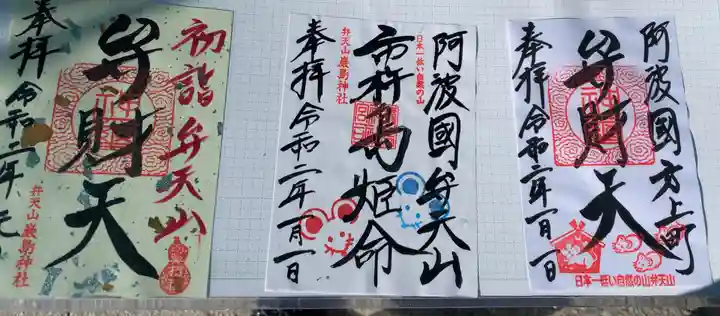 初詣弁天山
弁財天
奉拝令和二年元
弁天山厳島神社
阿波國弁天山
日本一低い自然の山
市杵島姫命
弁天山厳島神社
奉拝令和二年一月一日
阿波國方上町
弁財天
奉拝令和二年一月一日
日本一低い自然の山弁天山